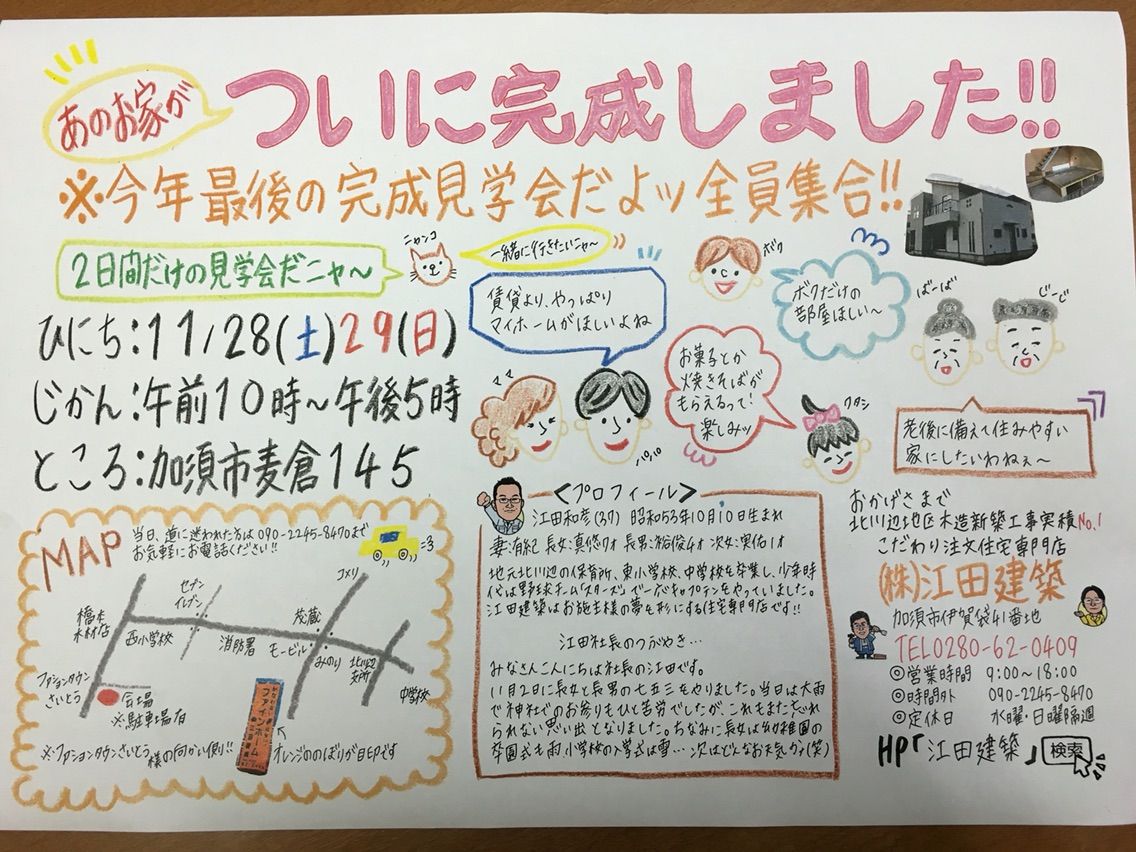 あのお家が
ついに完成しました!!
※今年最後の完成見学会だよッ全員集合!!
2日間だけの見学会だニャ〜
ニャンコ
一緒に行きたいニャ〜
ひにち:11/28(土)29(日)
じかん:午前10時〜午後5時
ところ:加須市麦倉145
賃貸より、やっぱり
マイホームがほしいよね
ボク
ボクだけの
部屋ほしい〜
ばーば
じーじ
お菓子とか
焼きそばが
もらえるって!
楽しみッ
ワタシ
老後に備えて住みやすい
家にしたいわねぇ〜
MAP
当日、道に迷われた方は090-2245-8470まで
お気軽にお電話ください!!
橋本
木材店
セブン
イレブン
西小学校
消防署
コメリ
茂蔵
モービル
みのり
北川辺
支所
中学校
ファッションタウン
さいとう
会場
※駐車場有
※ファッションタウンさいとう様の向かい側!!
ファインホーム
オレンジののぼりが目印です
<プロフィール>
江田和彦(37) 昭和53年10月10日生まれ
妻:有紀 長女:真悠7才 長男:裕俊4才 次女:実佑1才
地元北川辺の保育所、東小学校、中学校を卒業し、少年時
代は野球チーム「スターズ」で一応キャプテンをやっていました。
江田建築はお施主様の夢を形にする住宅専門店です!!
江田社長のつぶやき…
みなさんこんにちは社長の江田です。
11月2日に長女と長男の七五三をやりました。当日は大雨
で神社でのお参りもひと苦労でしたが、これもまた忘れ
られない思い出となりました。ちなみに長女は幼稚園の
卒園式も雨、小学校の入学式は雪…次はどんなお天気かな(笑)
おかげさまで
北川辺地区木造新築工事実績No.1
こだわり注文住宅専門店
(株)江田建築
加須市伊賀袋41番地
TEL0280-62-0409
◎営業時間 9:00〜18:00
◎時間外 090-2245-8470
◎定休日 水曜・日曜隔週
HP「江田建築」検索